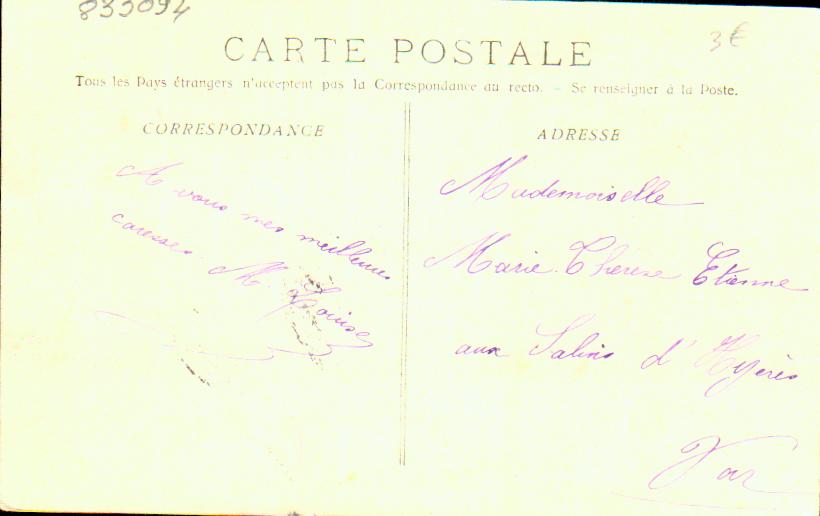 833094
3€
CARTE POSTALE
Tous les Pays étrangers n'acceptent pas la Correspondance au recto. - Se renseigner à la Poste.
CORRESPONDANCE
A vous mes meilleures
caresses. M. Louise
ADRESSE
Mademoiselle
Marie-Thérèse Etienne
aux Salins d'Hyères
Var